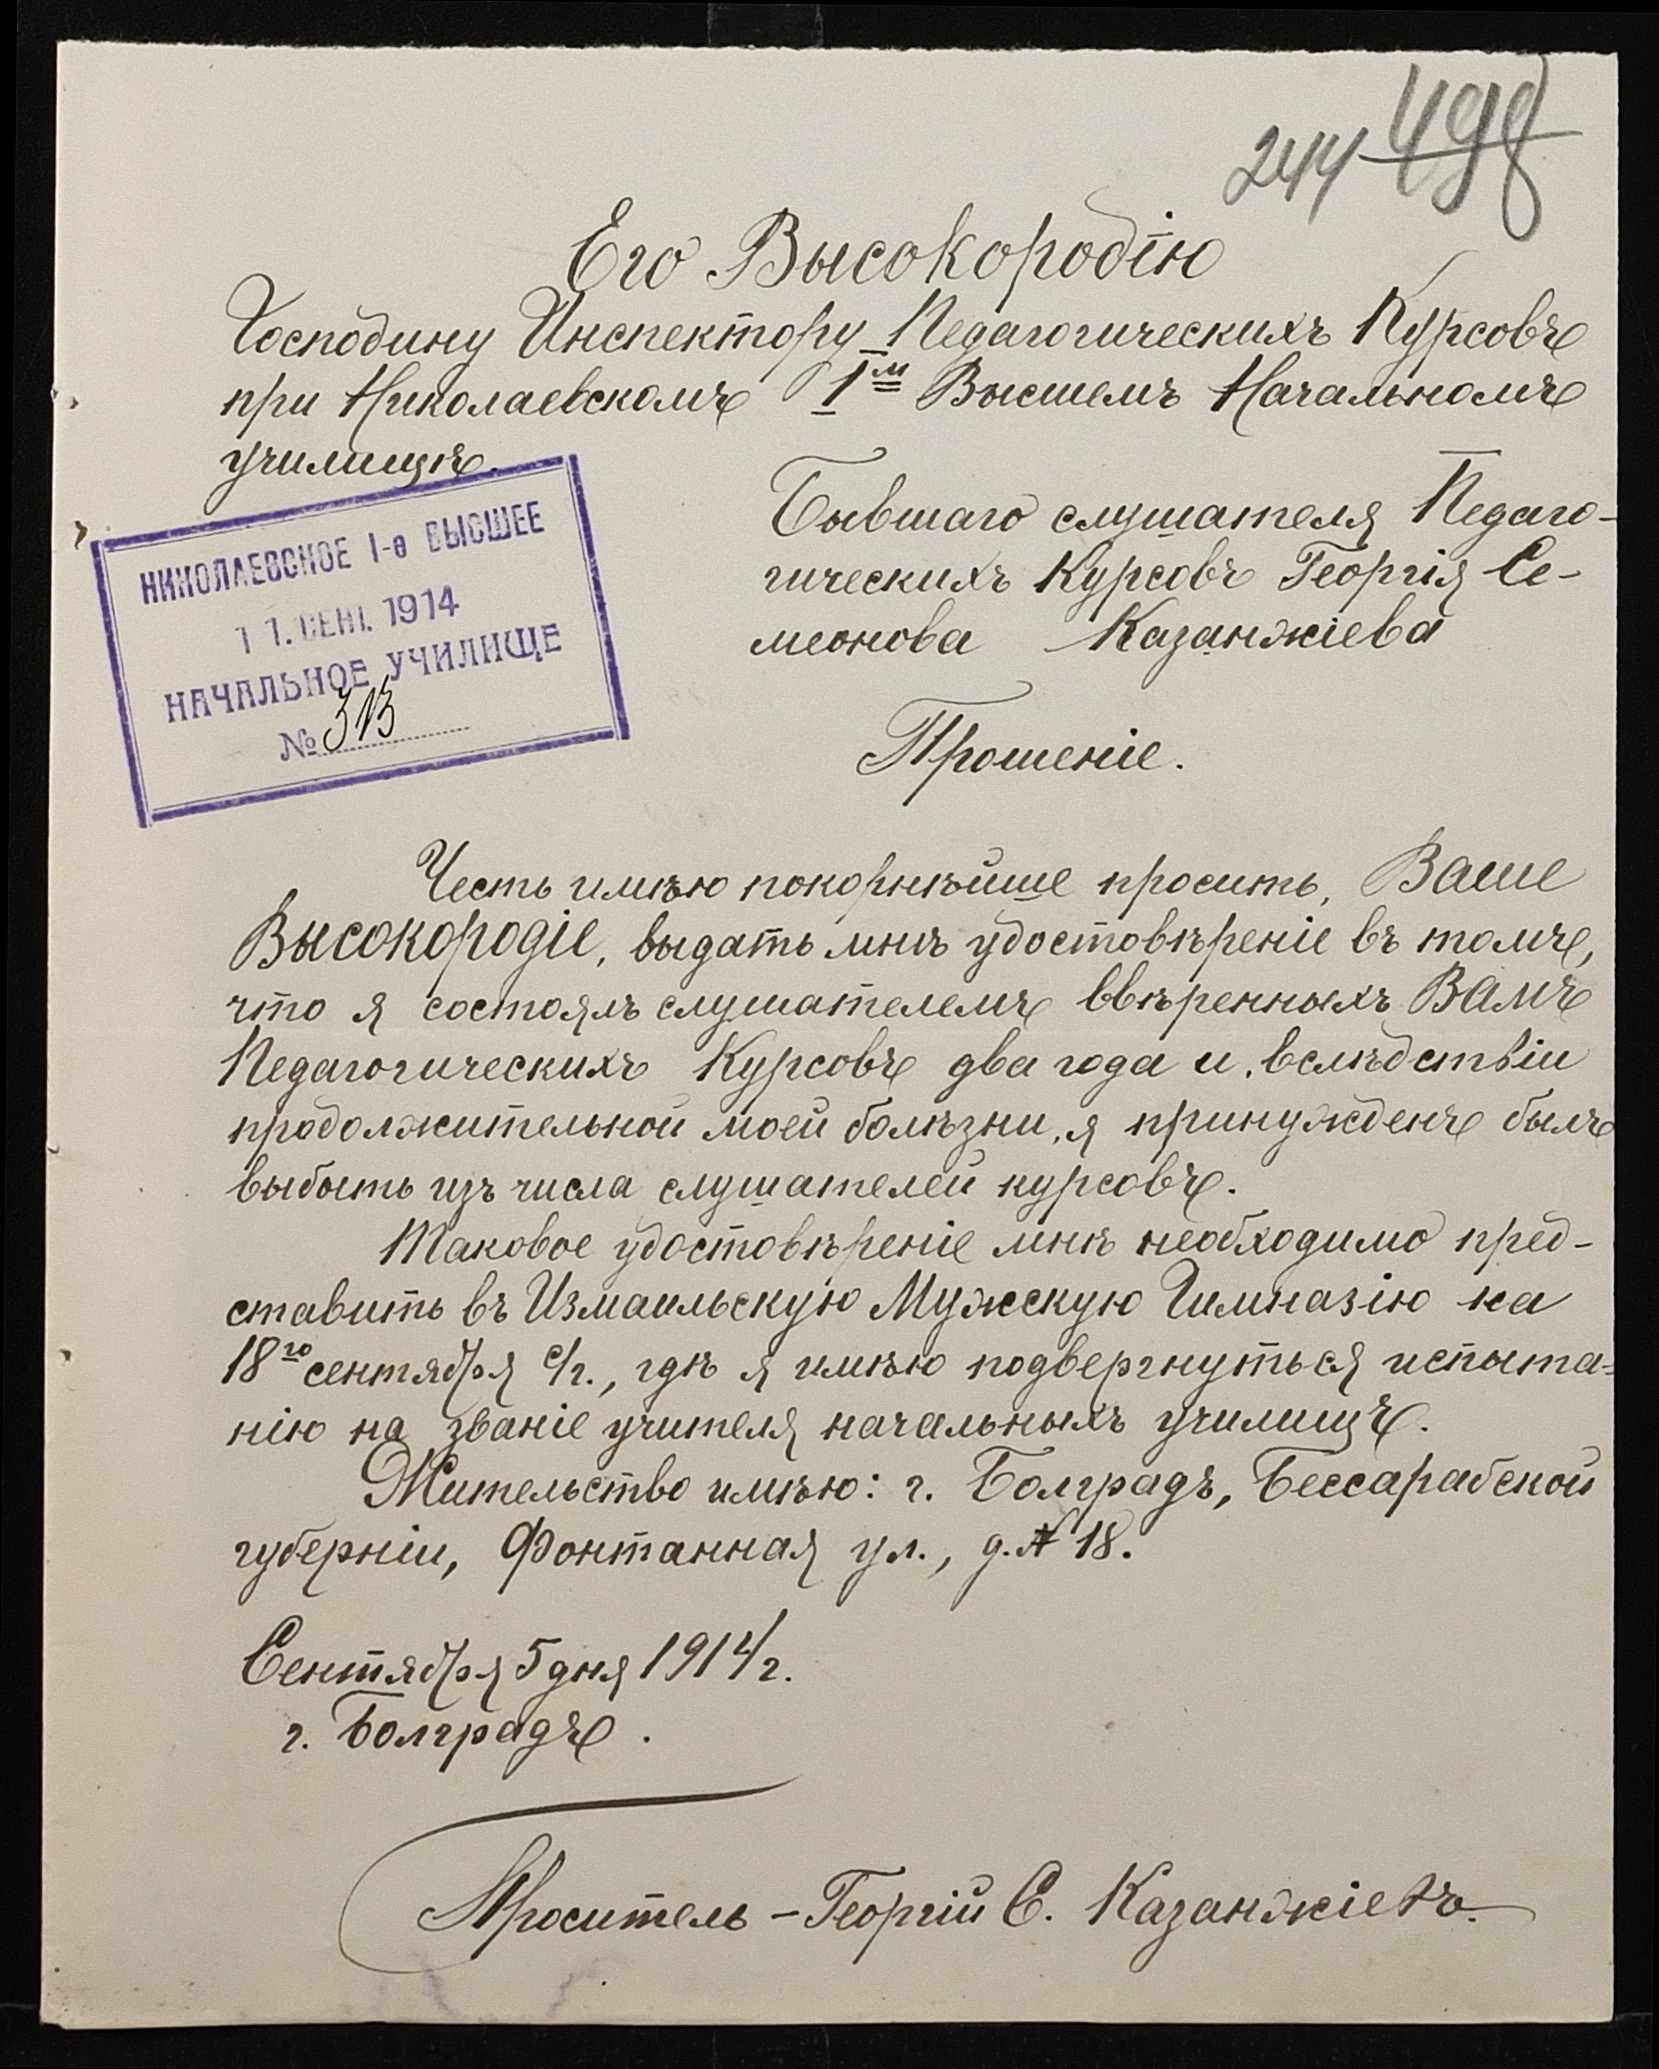 244 498
Его Высокородію
Господину Инспектору Педагогическихъ Курсовъ
при Николаевскомъ 1м Высшемъ Начальномъ
училищѣ.
Бывшаго слушателя Педаго-
гическихъ Курсовъ Георгія Се-
меонова Казанжіева
НИКОЛАЕВСКОЕ I-е ВЫСШЕЕ
11. СЕНТ. 1914
НАЧАЛЬНОЕ УЧИЛИЩЕ
№ 313
Прошеніе.
Честь имѣю покорнѣйше просить, Ваше
Высокородіе, выдать мнѣ удостовѣреніе въ томъ,
что я состоялъ слушателемъ ввѣренныхъ Вамъ
Педагогическихъ Курсовъ два года и, вслѣдствіи
продолжительной моей болѣзни, я принужденъ былъ
выбыть изъ числа слушателей курсовъ.
Таковое удостовѣреніе мнѣ необходимо пред-
ставить въ Измаильскую Мужскую Гимназію на
18го сентября с/г., гдѣ я имѣю подвергнуться испыта-
нію на званіе учителя начальныхъ училищъ.
Жительство имѣю: г. Болградъ, Бессарабской
губерніи, Фонтанная ул., д. № 18.
Сентября 5 дня 1914 г.
г. Болградъ.
Проситель - Георгій С. Казанжіевъ.